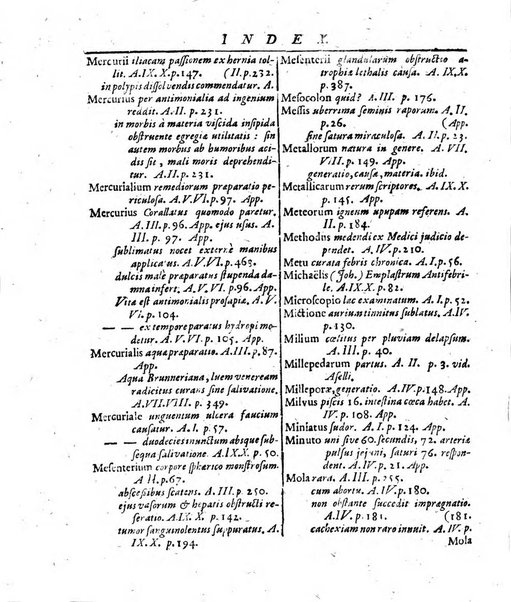 INDEX
Mercurii iliacam passionem ex hernia tol-
lit. A.IX.X.p.147. (II.p.232.
in polypis dissolvendis commendatur. A.
Mercurius per antimonialia ad ingenium
reddit. A.II. p. 231.
in morbis à materia viscida insipida
obstruente egregiæ utilitatis: sin
autem morbus ab humoribus aci-
dis sit, mali moris deprehendi-
tur. A.II.p. 231.
Mercurialium remediorum preparatio pe-
riculosa. A.V.VI.p. 97. App.
Mercurius Corallatus quomodo paretur.
A.III.p.96. App. ejus usus. A.
III. p. 97. App.
sublimatus nocet externè manibus
applicatus. A.V.VI.p.463.
dulcis malè præparatus stupenda da-
mna infert. A.V.VI.p.96. App.
Vita est antimonialis prosapiæ. A.V.
VI.p. 104.
— — ex tempore paratus hydropi me-
detur. A.V.VI. p. 105. App.
Mercurialis aqua præparatio. A.III.p.87.
App.
Aqua Brunneriana, luem veneream
radicitus curans sine salivatione.
A.VII.VIII. p. 349.
Mercuriale unguentum ulcera faucium
causatur. A.I. p. 57.
— — duodecies inunctum absque sub-
sequa salivatione. A.IX.X. p. 50.
Mesenterium corpore sphærico monstrosum.
A II.p.67.
abscessibus scatens. A.III.p. 250.
ejus vasorum & hepatis obstructi re-
seratio. A.IX.X. p.142.
tumor sanguinolentus suppuratus. A.
IX.X. p.194.
Mesenterii glandularum obstructio a-
trophiæ lethalis causa. A. IX.X.
p.387.
Mesocolon quid? A.III. p. 176.
Messis uberrima seminis raporum. A.II.
p.26. (App.
sine satura miraculosa. A.II.p. 23.
Metallorum natura in genere. A.VII.
VIII.p. 149. App.
generatio, causæ, materia. ibid.
Metallicarum rerum scriptores. A.IX.X.
p. 145. App.
Meteorum igneum upupam referens. A.
II. p. 184.
Methodus medendi ex Medici judicio de-
pendet. A.IV.p.210.
Metu curata febris chronica. A.I.p.56.
Michaëlis (Joh.) Emplastrum Antifebri-
le. A.IX.X.p.82.
Microscopio lac examinatum. A.I.p. 52.
Mictione aurium tinnitus sublatus. A.IV.
p.130.
Milium cœlitus per pluviam delapsum.
A. III. p. 40.
Millepedarum partus. A. II. p. 3. vid.
Aselli.
Milleporæ generatio. A.IV.p.148. App.
Milvus piscis 16. intestina cœca habet. A.
IV.p. 108. App.
Miniatus sudor. A.I. p. 124. App.
Minuto uni sive 60. secundis, 72. arteriæ
pulsus jejuni, saturi 76. respon-
dent. A.IV.p. 21. App.
Mola rara. A.III. p. 255.
cum abortu. A.IV.p.180.
non obstante succedit imprægnatio.
A.IV.p. 181. (181.
cachexiam non raro innuit. A.IV. p.
Mola